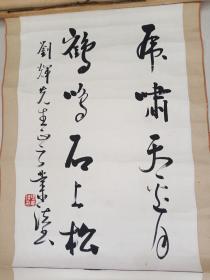 虎啸天边月
鹤鸣石上松
刘辉先生正之 业法